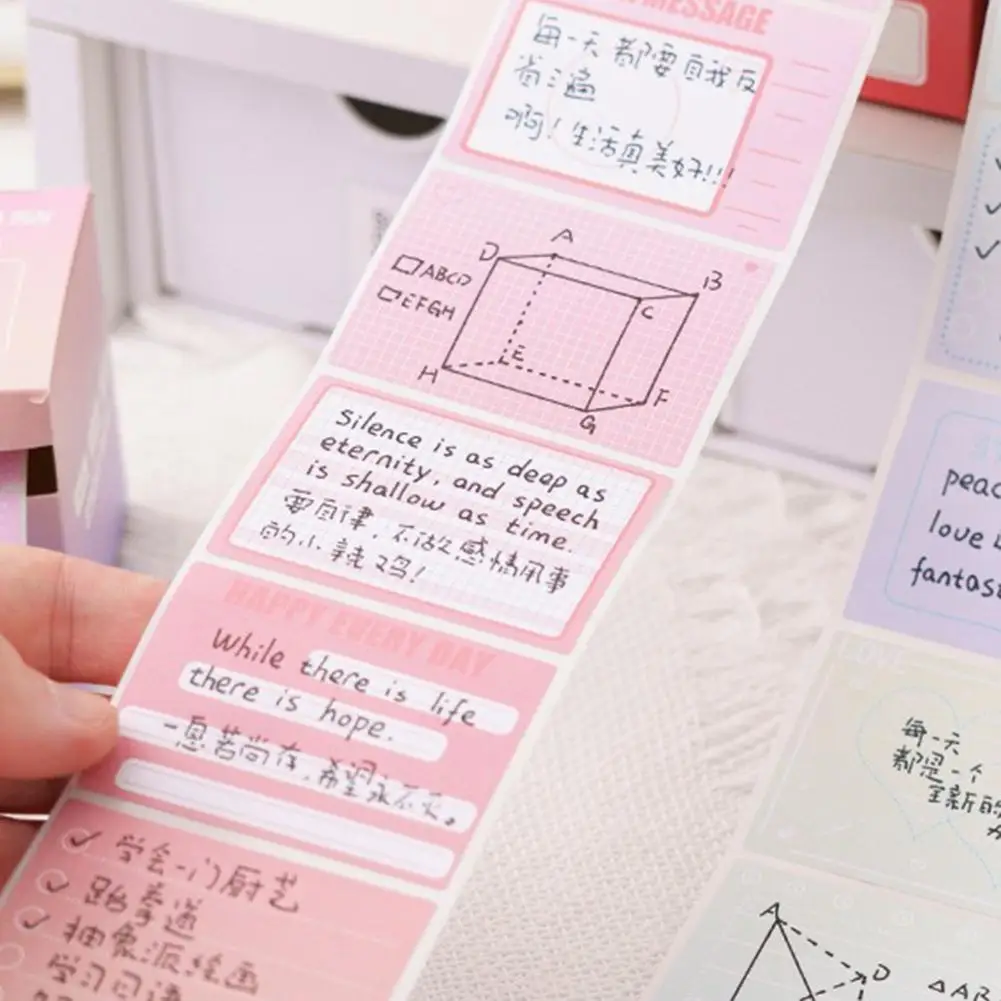 MESSAGE
每一天都要自我反
省三遍
啊!生活真美好!!!
A
D
B
▱ABCD
C
▱EFGH
E
H
F
G
Silence is as deep as
eternity, and speech
is shallow as time.
要自律,不做感情用事
的小辣鸡!
HAPPY EVERY DAY
While there is life
there is hope.
一息若尚存,希望永不灭。
学会一门厨艺
跆拳道
抽象派绘画
学习口语
peac
love
fantas
每一天
都是一个
全新的
A
D
△AB